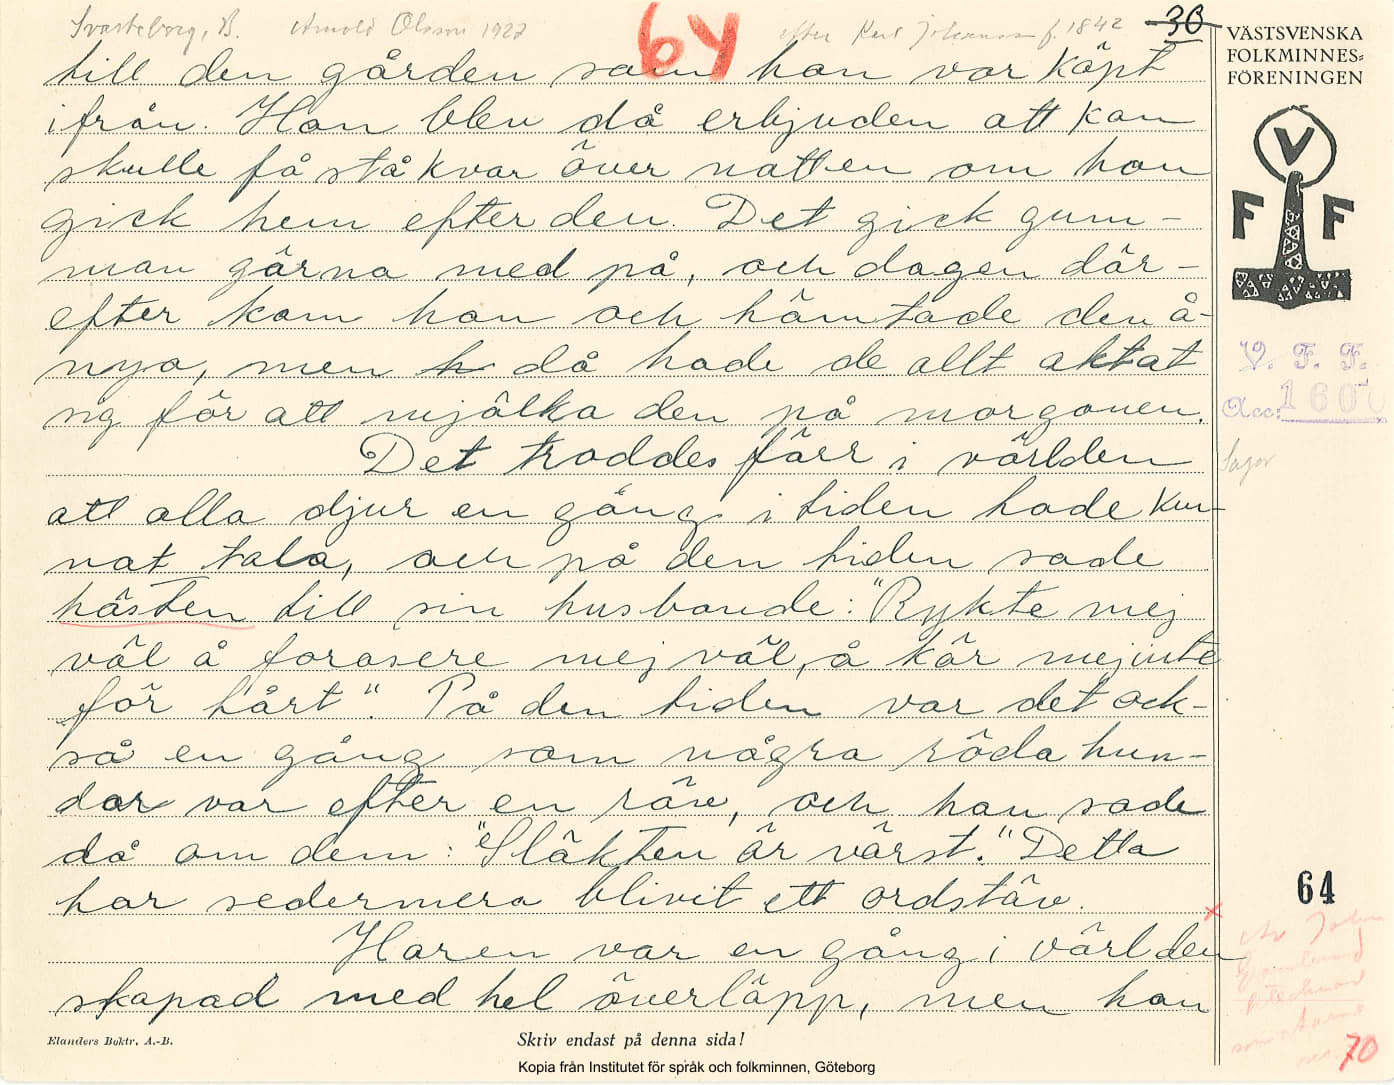 Svarteborg, B. Arnold Olsson 1927 64 efter Karl Johansson f. 1842 30
VÄSTSVENSKA
FOLKMINNES=
FÖRENINGEN
till den gården som han var köpt
ifrån. Han blev då erbjuden att kon
skulle få stå kvar över natten om han
gick hem efter den. Det gick gum-
man gärna med på, och dagen där-
efter kom han och hämtade den å-
nyo, men h då hade de allt aktat
sig för att mjölka den på morgonen.
Det troddes förr i världen
att alla djur en gång i tiden hade kun-
nat tala, och på den tiden sade
hästen till sin husbonde: "Rykte mej
väl å forasere mej väl, å kär mej inte
för hårt". På den tiden var det ock-
så en gång som några röda hun-
dar var efter en räv, och han sade
då om dem: "Släkten är värst." Detta
har sedermera blivit ett ordstäv.
Haren var en gång i världen
skapad med hel överläpp, men han
V
F F
V. F. F.
Acc: 1600
Sagor
64
Av John
70
Elanders Boktr. A.-B.
Skriv endast på denna sida!
Kopia från Institutet för språk och folkminnen, Göteborg